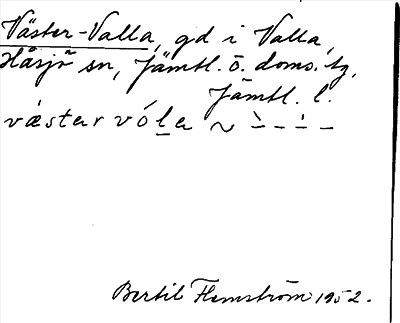 Väster-Valla, gd i Valla,
Håsjö sn, Jämtl. ö. doms. tg,
Jämtl. l.
västar vóla ~ ̀ – ́ –
Bertil Flemström 1952.